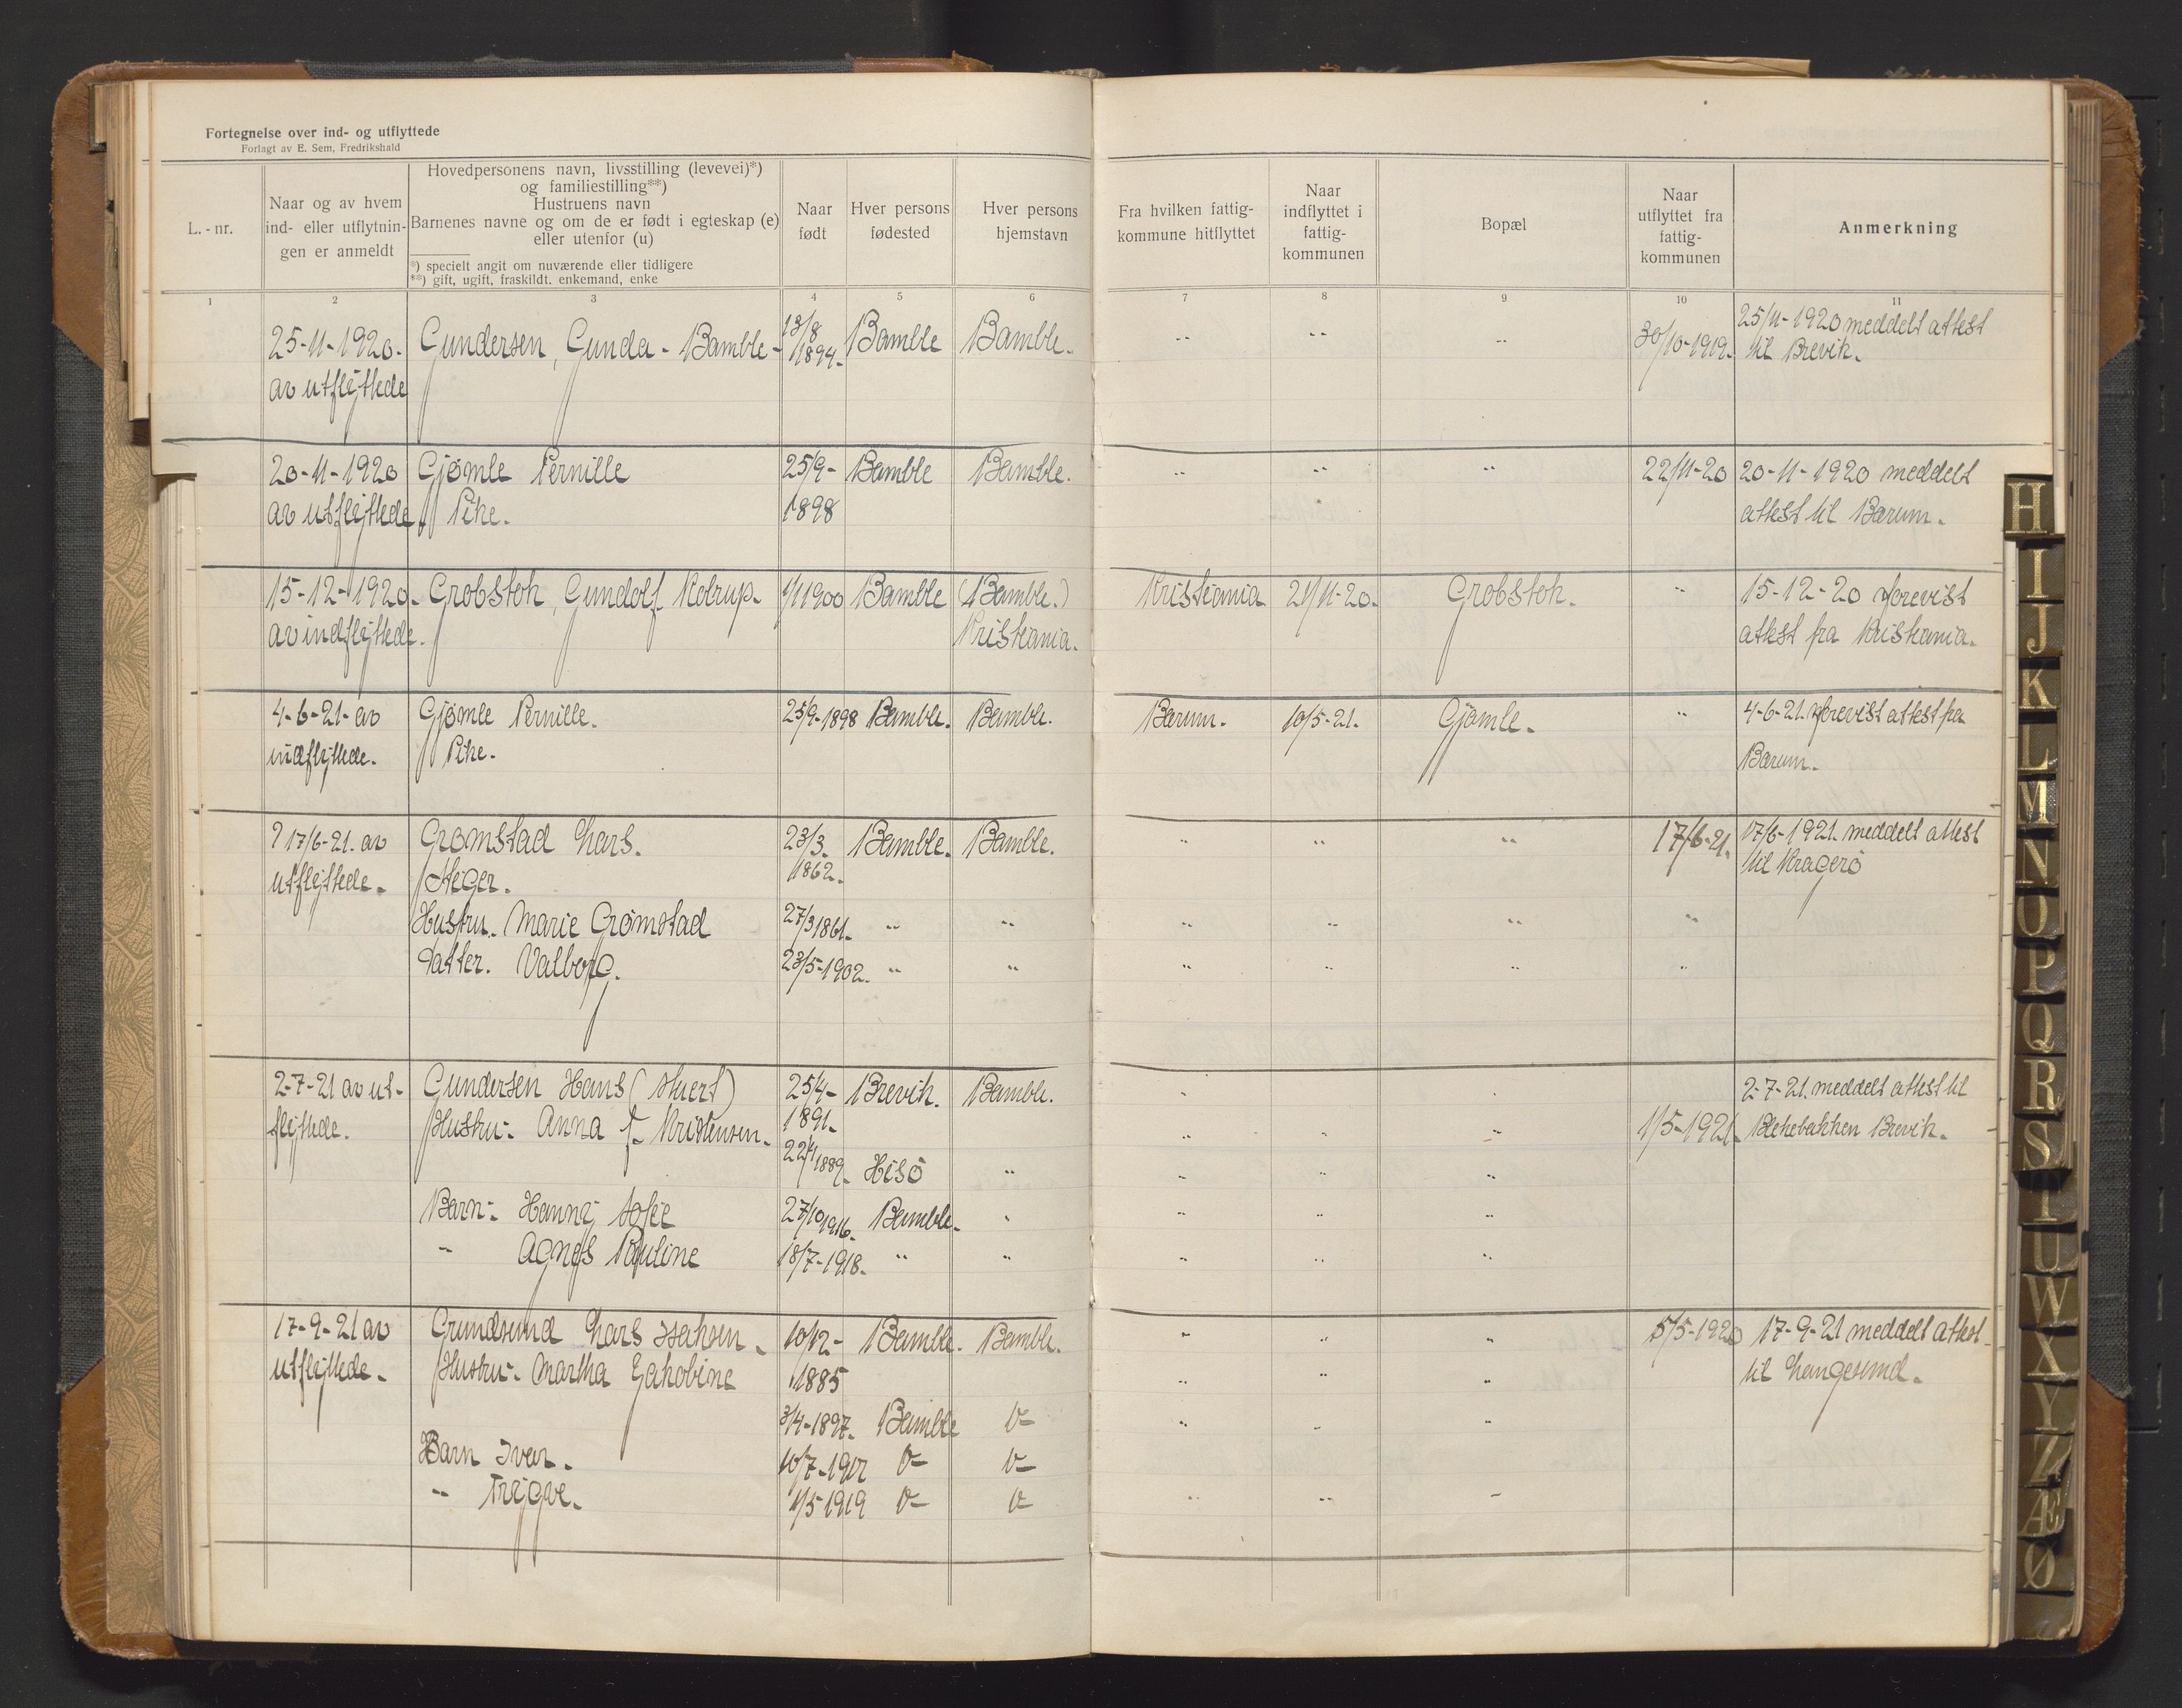 Fortegnelse over ind- og utflyttede
Forlagt av E. Sem, Fredrikshald
L.-nr.
Naar og av hvem
ind- eller utflytnin-
gen er anmeldt
Hovedpersonens navn, livsstilling (levevei)*)
og familiestilling**)
Hustruens navn
Barnenes navne og om de er født i egteskap (e)
eller utenfor (u)
*) specielt angit om nuværende eller tidligere
**) gift, ugift, fraskildt. enkemand, enke
Naar
født
Hver persons
fødested
Hver persons
hjemstavn
Fra hvilken fattig-
kommune hitflyttet
Naar
indflyttet i
fattig-
kommunen
Bopæl
Naar
utflyttet fra
fattig-
kommunen
Anmerkning
1 2 3 4 5 6 7 8 9 10 11
25-11-1920. Gundersen, Gunda - Bamble - 13/8 1894. Bamble Bamble. " " " 30/10-1919. 25/11-1920 meddelt attest
av utflyttede til Brevik.
20-11-1920 Gjømle Pernille 25/9- Bamble Bamble. " " " 22/11-20 20-11-1920 meddelt
av utflyttede Pike. 1898 attest til Bærum.
15-12-1920. Grobstok, Gundolf Kolrup. 1/1 1900 Bamble (Bamble.) Kristiania 21/11-20. Grobstok. " 15-12-20 forevist
av indflyttede. Kristiania. attest fra Kristiania.
4-6-21 av Gjømle Pernille. 25/9-1898 Bamble. Bamble. Bærum. 10/5-21. Gjømle. " 4-6-21. forevist attest fra
indflyttede. Pike. Bærum.
17/6-21. av Grømstad Lars. 23/3. Bamble. Bamble. " " " 17/6-21. 17/6-1921. meddelt attest
utflyttede. 1862. til Kragerö
Hustru. Marie Grømstad 27/3 1861. " " " " " "
Datter. Valborg. 23/5-1902. " " " " " "
2-7-21 av ut- Gundersen Hans 25/4- Brevik. Bamble. 2-7-21. meddelt attest til
flyttede. Hustru: Anna f. Kristensen. 1891. " " " 1/5-1921. Blekebakken Brevik.
1889. Hisö " " " "
Barn: Hanny Sofie 27/10 1916. Bamble. " " " "
" Agnes Pauline 18/7-1918. " " " " "
17-9-21 av Grundsund Lars Isaksen. 10/12- Bamble. Bamble. " " " 5/5-1920 17-9-21 meddelt attest
utflyttede. Hustru: Martha Jakobine 1885 " " " til Langesund.
3/4-1897. Bamble " " "
Barn Ivar.
" Trygve. 1/5-1919 " " "
H
I
J
K
L
M
N
O
P
Q
R
S
T
U
W
X
Y
Z
Æ
Ø